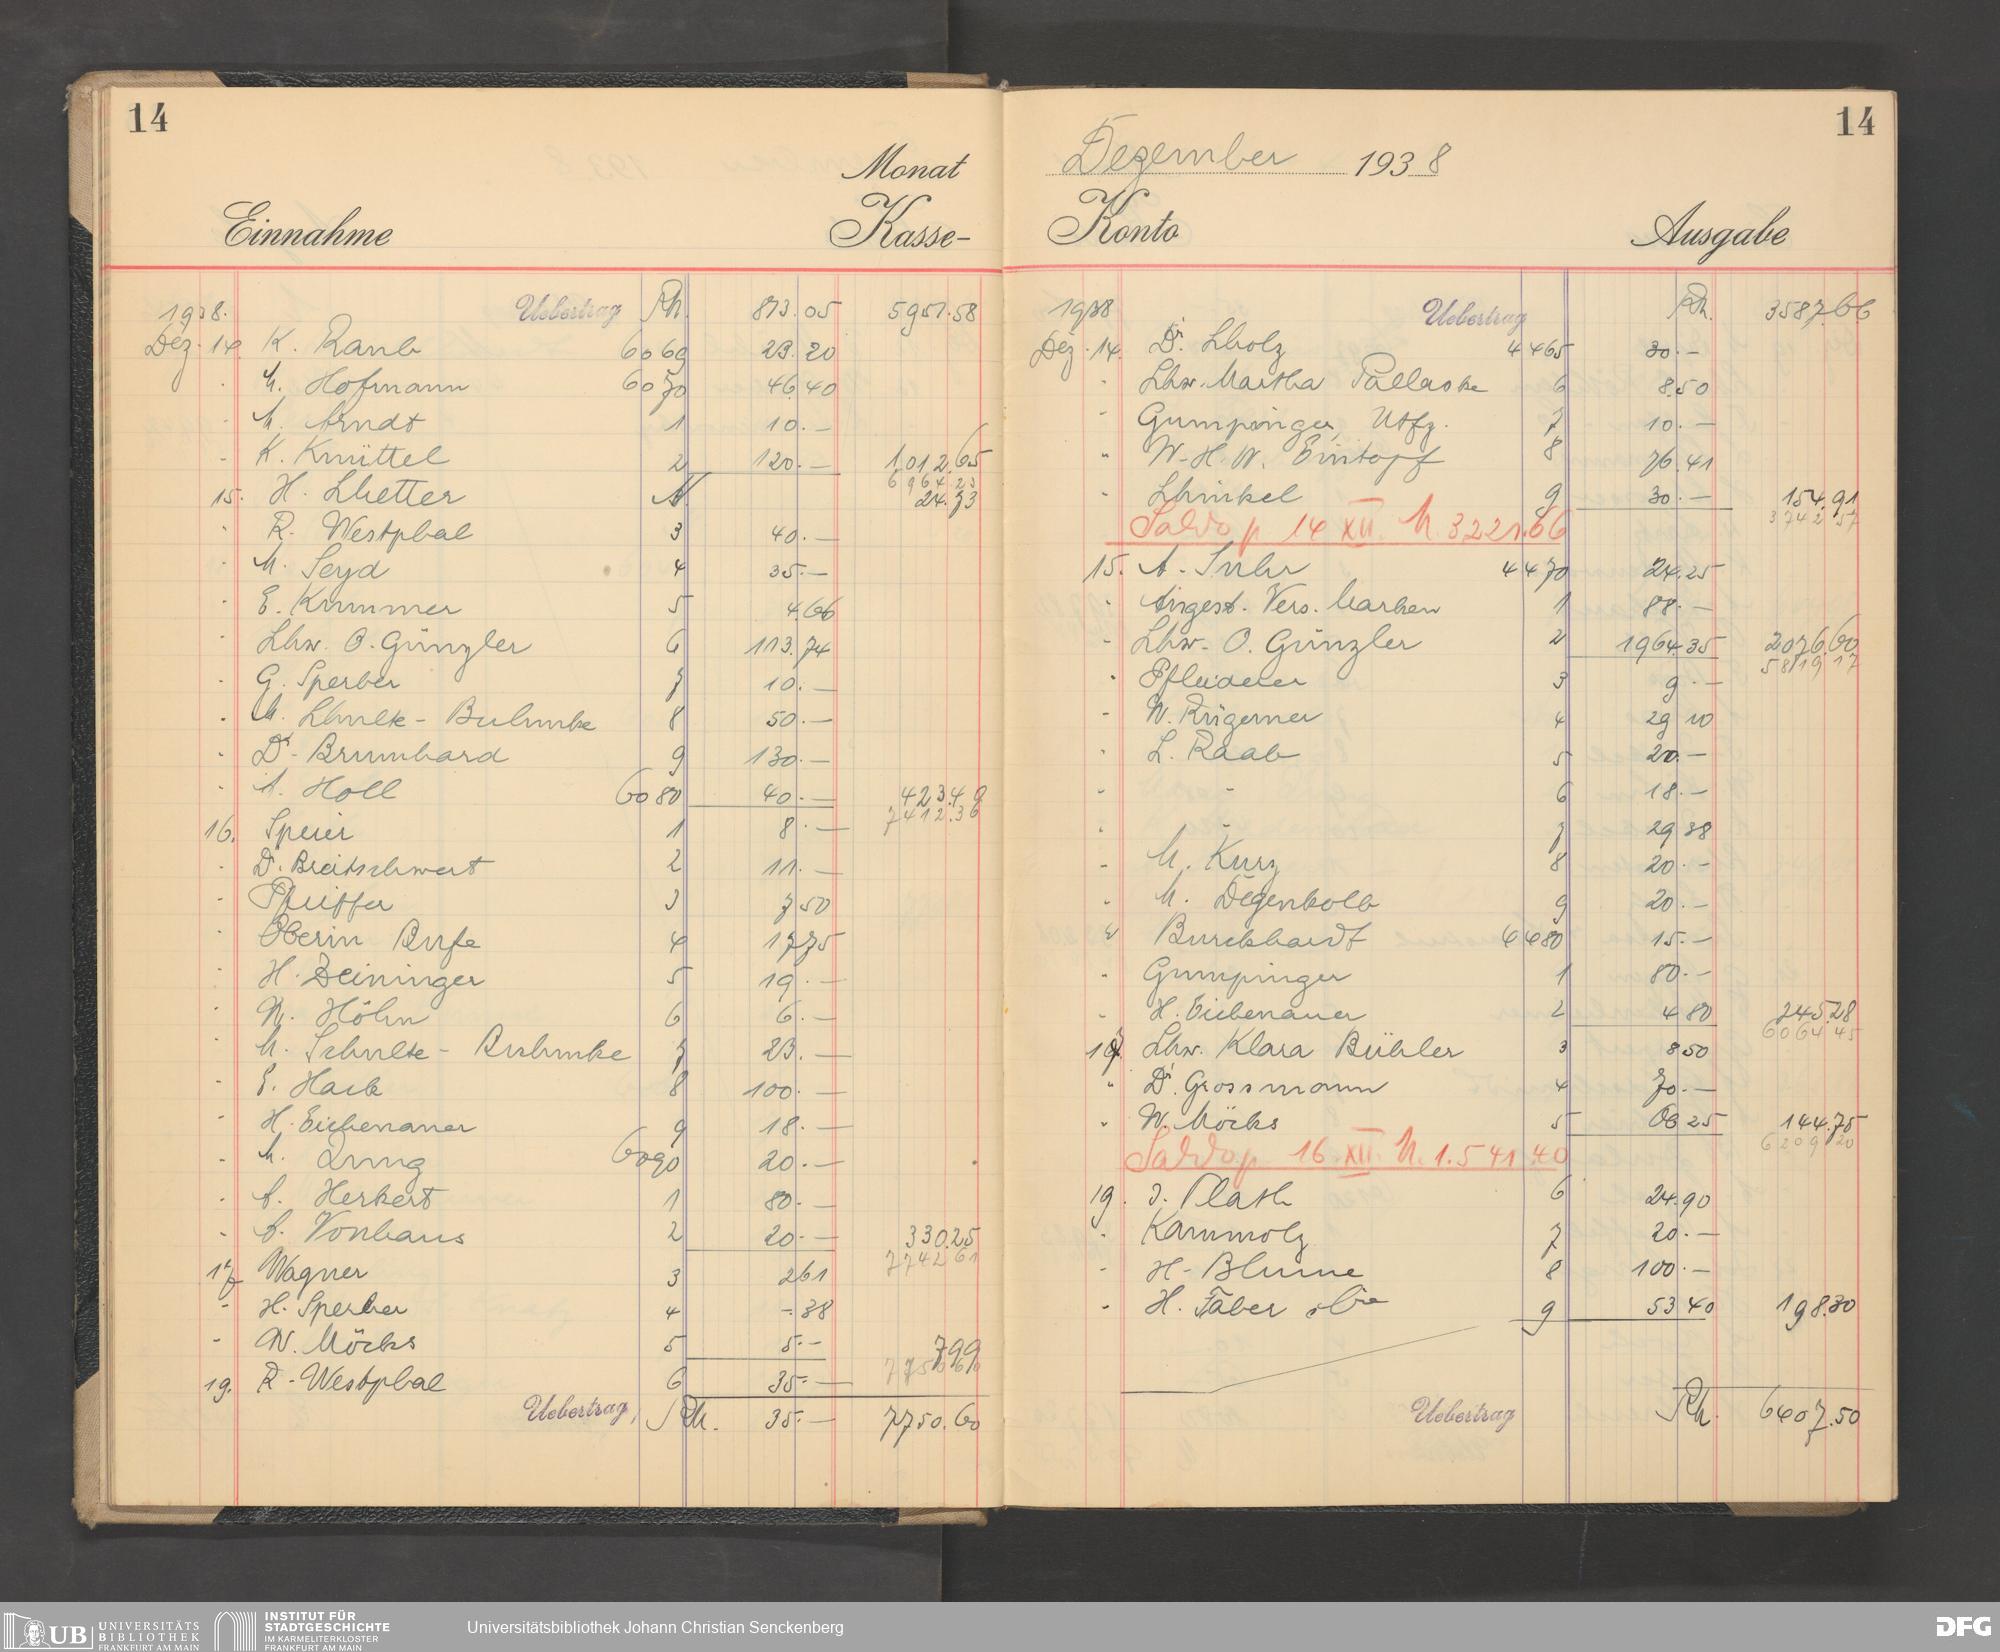 14
Monat
Einnahme Kasse-
1938. Uebertrag Rh. 873.05 5951.58
Dez. 14. K. Raub 6069 23.20
" M. Hofmann 6070 46.40
" A. Arndt 1 10.—
" K. Knüttel 2 120.— 1012.65
6964 23
15. H. Lhetter 24.73
" R. Westphal 3 40.—
" M. Seyd 4 35.—
" E. Kummer 5 4.66
" Lhw. O. Günzler 6 113.74
" G. Sperber 7 10.—
" M. Schulte - Bubunke 8 50.—
" Dr. Brumhard 9 130.—
" A. Holl 6080 40.— 423.49
7412.36
16. Speier 1 8.—
" D. Breitschwert 2 11.—
" Pfeiffer 3 7 50
" Oberin Bufe 4 17 75
" H. Deininger 5 19.—
" M. Höhn 6 6.—
" M. Schulte - Bubunke 7 23.—
" E. Hack 8 100.—
" H. Eichenauer 9 18.—
" M. Jung 6090 20.—
" A. Herkert 1 80.—
" A. Vonhaus 2 20.— 330.25
7742 61
17 Wagner 3 2 61
" H. Sperber 4 -.38
" W. Möcks 5 5.— 7 99
7750 60
19. R. Westphal 6 35.—
Uebertrag Rh. 35.— 7750.60
14
Dezember 1938
Konto Ausgabe
1938 Uebertrag Rh. 3587.66
Dez. 14. Dr. Lholz 4465 30.—
" Lhw. Martha Pallaske 6 8.50
" Gumpinger, Utfz. 7 10.—
" W.H.W. Eintopf 8 76.41
" Lhinkel 9 30.— 154.91
3742 57
Saldo p 14 XII. M. 3221.66
15. A. Suhr 4470 24.25
" Angest. Vers. Marken 1 88.—
" Lhw. O. Günzler 2 1964.35 2076.60
5819 17
" Pfleiderer 3 9.—
" W. Rügemer 4 29 10
" L. Raab 5 20.—
" " 6 18.—
" " 7 29 38
" M. Kurz 8 20.—
" M. Degenkolb 9 20.—
" Burckhardt 4480 15.—
" Gumpinger 1 80.—
" H. Eichenauer 2 4 80 245.28
6064 45
16. Lhw. Klara Bühler 3 8 50
" Dr. Grossmann 4 70.—
" W. Möcks 5 66 25 144.75
6209 20
Saldo p 16 XII. M. 1.541.40
19. J. Plath 6 24.90
" Kammolz 7 20.—
" H. Blume 8 100.—
" H. Faber 9 53 40 198.30
Uebertrag Rh. 6407.50
UB UNIVERSITÄTS
BIBLIOTHEK
FRANKFURT AM MAIN
INSTITUT FÜR
STADTGESCHICHTE
IM KARMELITERKLOSTER
FRANKFURT AM MAIN
Universitätsbibliothek Johann Christian Senckenberg
DFG